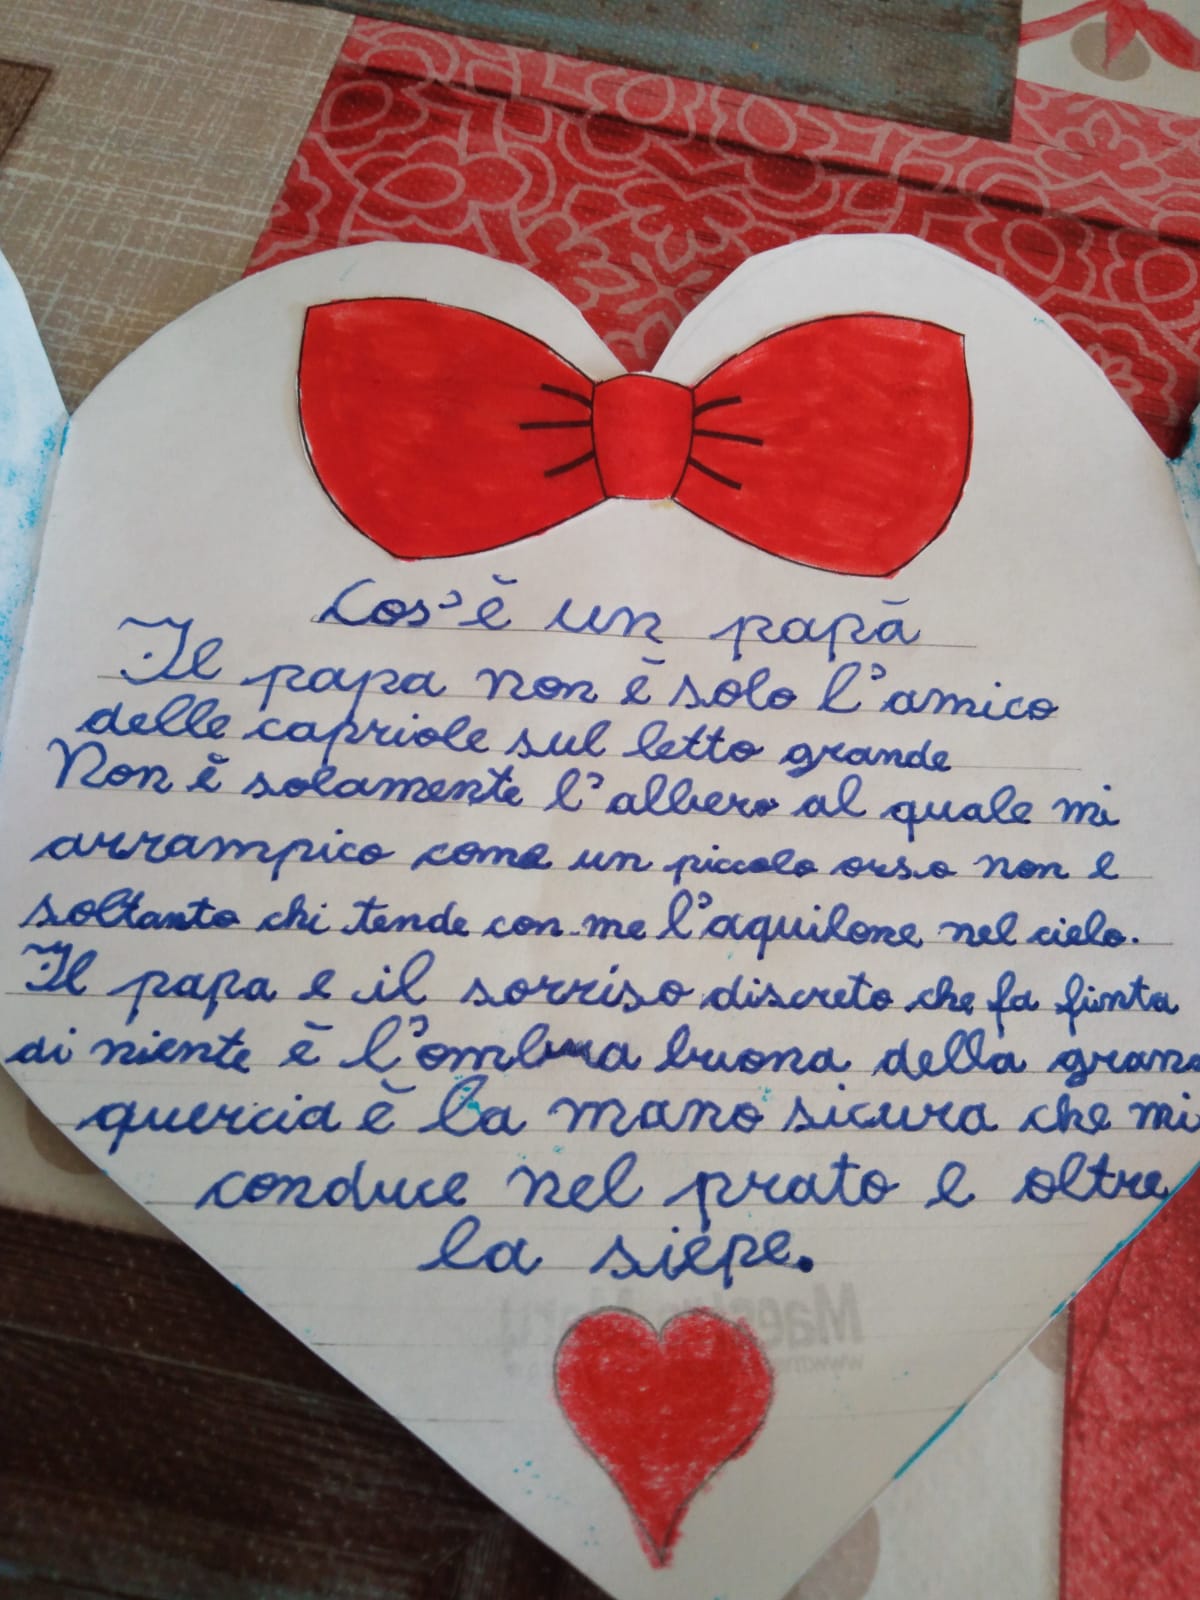 Cos'è un papà
Il papa non è solo l'amico
delle capriole sul letto grande
Non è solamente l'albero al quale mi
arrampico come un piccolo orso non e
soltanto chi tende con me l'aquilone nel cielo.
Il papa e il sorriso discreto che fa finta
di niente è l'ombra buona della grand
quercia è la mano sicura che mi
conduce nel prato e oltre
la siepe.